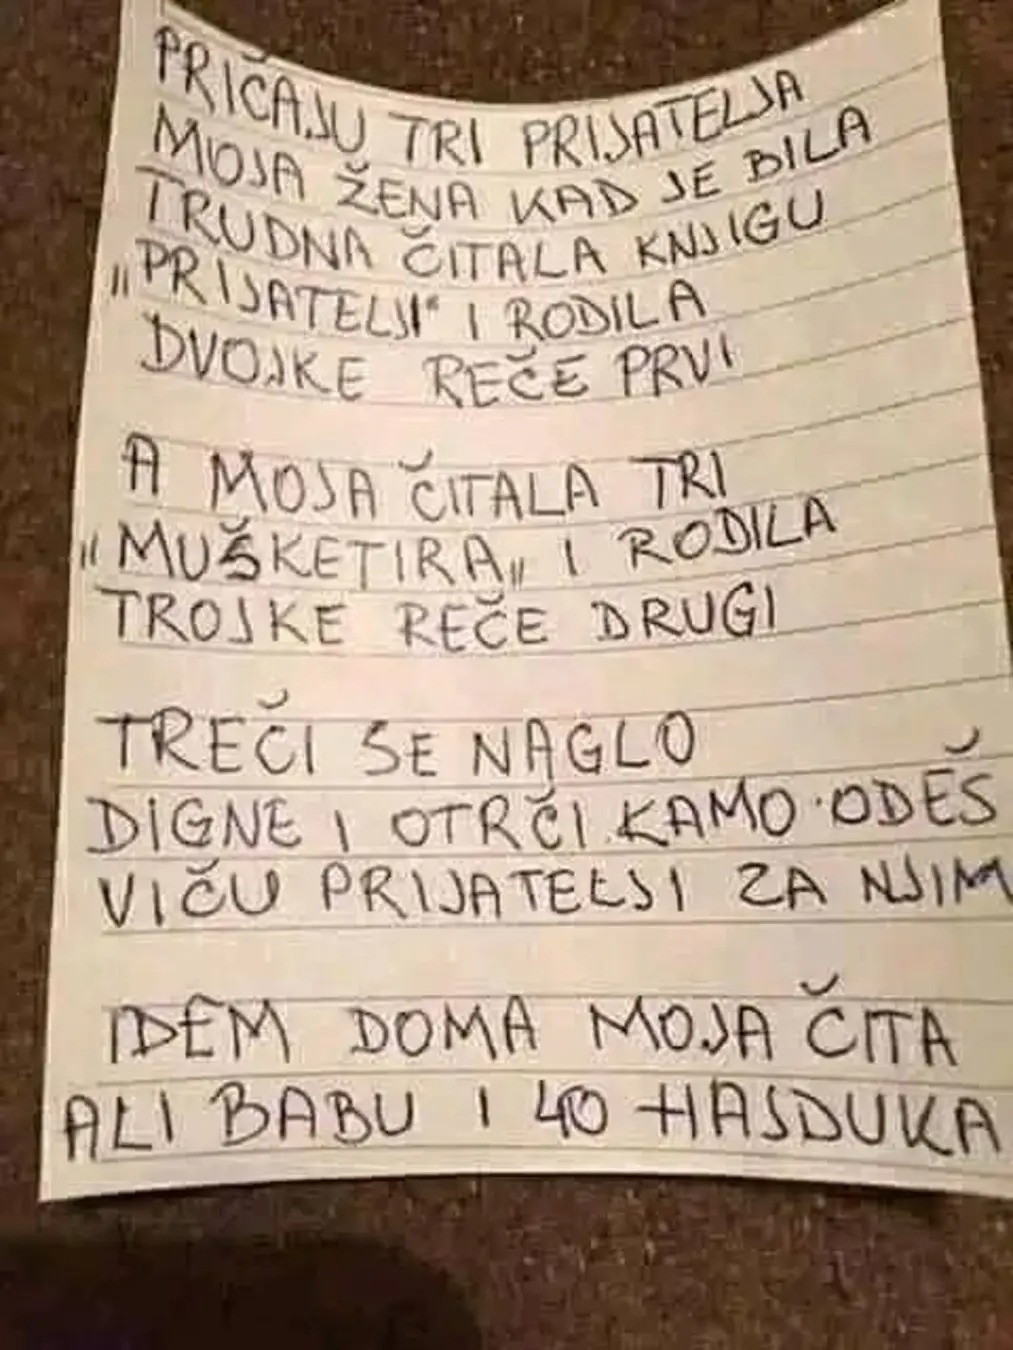 PRIČAJU TRI PRIJATELJA
MOJA ŽENA KAD JE BILA
TRUDNA ČITALA KNJIGU
"PRIJATELJI" I RODILA
DVOJKE REČE PRVI
A MOJA ČITALA TRI
"MUŠKETIRA„ I RODILA
TROJKE REČE DRUGI
TREČI SE NAGLO
DIGNE I OTRČI KAMO ODEŠ
VIČU PRIJATELJI ZA NJIM
IDEM DOMA MOJA ČITA
ALI BABU I 40 HAJDUKA